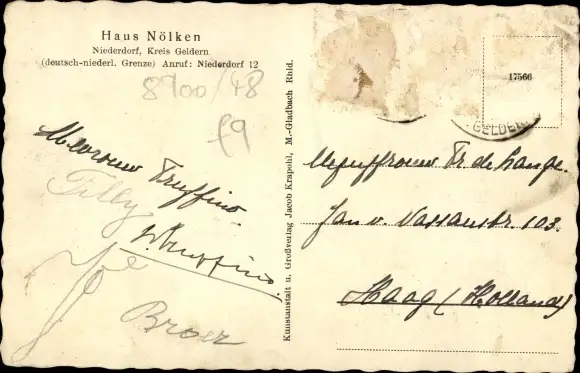 Haus Nölken
Niederdorf, Kreis Geldern
(deutsch-niederl. Grenze) Anruf: Niederdorf 12
8900/48
f9
Mevrouw Truffino.
Tilly
Truffino.
Joe
Broer
Kunstanstalt u. Großverlag Jacob Krapohl, M.-Gladbach Rhld.
17566
GELDERN
Mejuffrouw Tr. de Lange.
Jan v. Nassaustr. 103.
Haag (Holland)